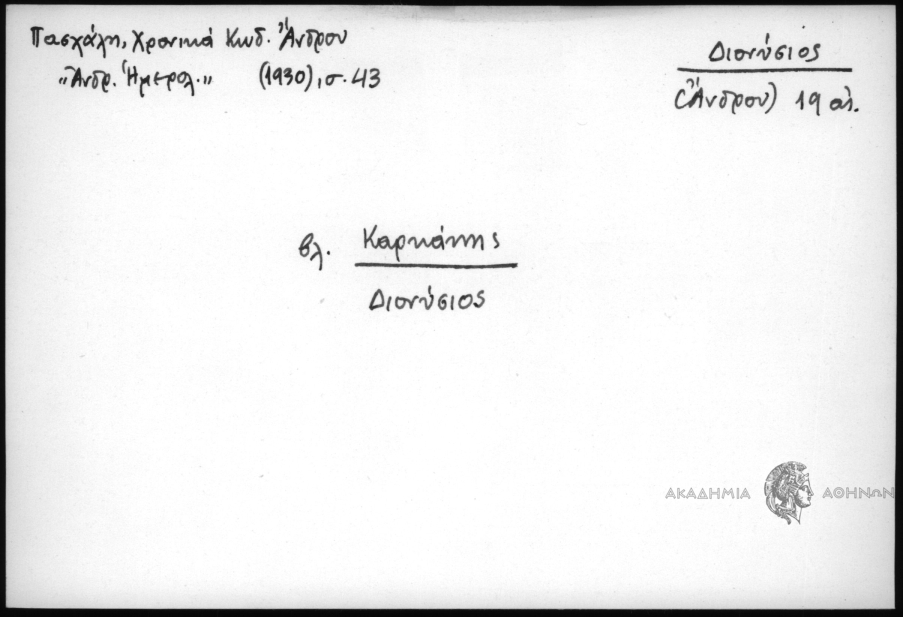 Πασχάλη, Χρονικά Κωδ. Ἄνδρου
„Ἀνδρ. Ἡμερολ." (1930), σ. 43
Διονύσιος
(Ἄνδρου) 19 αἰ.
βλ. Καρκάνης
Διονύσιος
ΑΚΑΔΗΜΙΑ ΑΘΗΝΩΝ